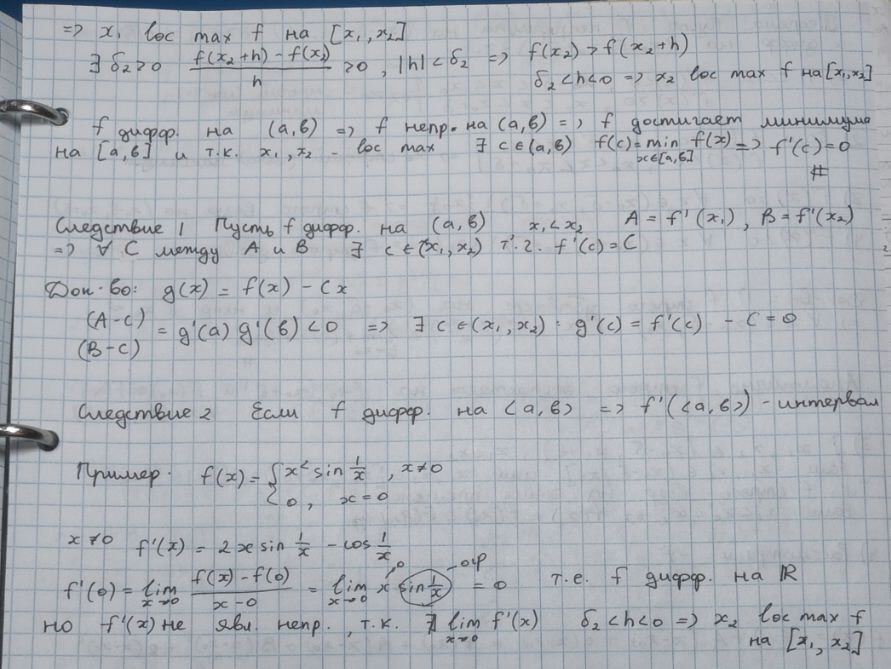 => x₁ loc max f на [x₁, x₂]
∃ δ₂>0 (f(x₂+h) - f(x₂))/h >0, |h|<δ₂ => f(x₂) > f(x₂+h)
δ₂<h<0 => x₂ loc max f на [x₁,x₂]
f дифф. на (a,b) => f непр. на (a,b) => f достигает минимума
на [a,b] и т.к. x₁, x₂ - loc max ∃ c∈(a,b) f(c) = min f(x) => f'(c)=0
x∈[a,b]
#
Следствие 1 Пусть f дифф. на (a,b) x₁<x₂ A = f'(x₁), B = f'(x₂)
=> ∀ C между A и B ∃ c∈(x₁,x₂) т.ч. f'(c) = C
Док-во: g(x) = f(x) - Cx
(A-C)
(B-C) = g'(a) g'(b) <0 => ∃ c∈(x₁,x₂) : g'(c) = f'(c) - C = 0
Следствие 2 Если f дифф. на <a,b> => f'(<a,b>) - интервал
Пример. f(x) = { x² sin 1/x, x≠0
0, x=0
x≠0 f'(x) = 2x sin 1/x - cos 1/x
f'(0) = lim x→0 (f(x)-f(0))/(x-0) = lim x→0 x sin 1/x = 0 т.е. f дифф. на ℝ
→0 - огр
но f'(x) не явл. непр., т.к. ∄ lim x→0 f'(x) δ₂<h<0 => x₂ loc max f
на [x₁, x₂]